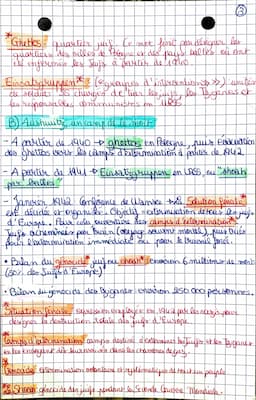 3
* Ghettos : quartier juif. Ce mot finit par désigner les
quartiers des villes de Pologne et des pays baltes où ont
été enfermés les Juifs à partir de 1940.
Einsatzgruppen* : ("groupes d'intervention") unités
de soldats chargés de tuer les juifs, les Tziganes et
les responsables communistes en URSS.
B) Auschwitz, un camp de la mort
- A partir de 1940 → ghettos en Pologne, puis évacuation
des ghettos vers les camps d'extermination à partir de 1942
- A partir de 1941 → Einsatzgruppen en URSS, ou "shoah
par balles"
- Janvier 1942 Conférence de Wannsee → la solution finale*
est décidée et organisée. Objectif : extermination de tous les juifs
d'Europe. Pour cela, ouverture des camps d'extermination*.
Juifs acheminés par train (voyage souvent mortel), puis triés
pour l'extermination immédiate ou pour le travail forcé.
• Bilan du génocide* juif ou shoah* : environ 6 millions de morts
(50% des Juifs d'Europe)
• Bilan du génocide des Tziganes : environ 250 000 personnes.
* Solution finale : expression employée en 1942 par les nazis pour
désigner la destruction totale des juifs d'Europe.
* Camps d'extermination : camps destinés à exterminer les Juifs et les Tziganes
Génocide : extermination volontaire et systématique de tout un peuple
* Shoah : génocide des juifs pendant la Seconde Guerre Mondiale.